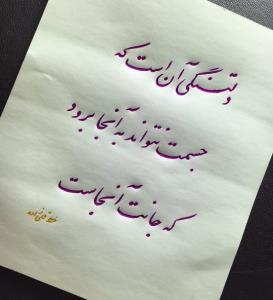 دلتنگی آن است که
جسمت نتواند به آنجا برود
که جانت آنجاست